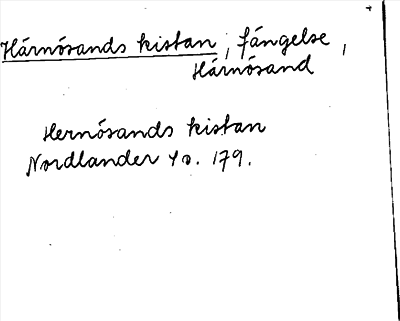 Härnösands kistan, fängelse,
Härnösand
Hernösands kistan
Nordlander 179.